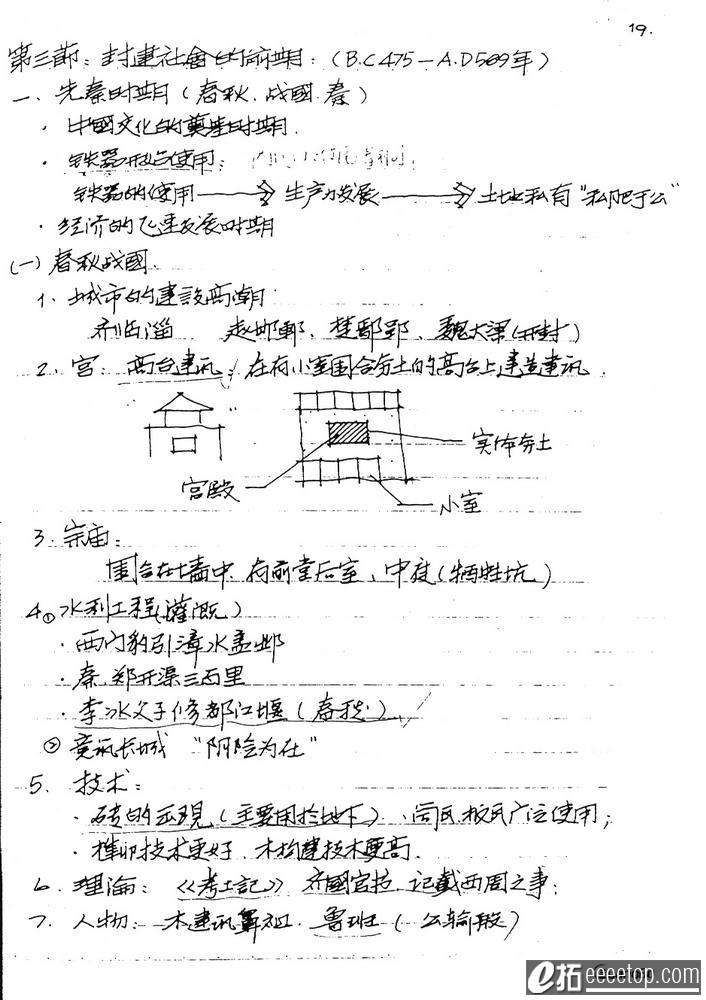 19.
第三節：封建社會的前期：（B.C 475－A.D 589年）
一、先秦時期（春秋.战國.秦）
· 中國文化的奠基時期.
· 铁器 使用：
铁器的使用 → 生产力发展 → 土地私有 "私肥于公"
· 经济的飞速发展时期
(一) 春秋战國.
1、城市的建設高潮
齐临淄 赵邯郸、楚鄢郢、魏大梁(开封)
2、宫：高台建筑：在有小室围合夯土的高台上建造建筑.
实体夯土
宫殿
小室
3. 宗庙：
围合在墙中.有前堂后室、中庭(牺牲坑)
4. ① 水利工程(灌溉)
· 西门豹引漳水 邺
· 秦.郑开渠三百里
· 李冰父子修都江堰（春秋）✓
② 竟筑长城 "阴险为在"
5. 技术：
· 砖的出现（主要用於地下）、筒瓦.板瓦广泛使用；
· 榫卯技术更好.木构建技术更高.
6. 理論：《考工記》齐國官 .记载西周之事；
7. 人物：木建筑鼻祖.鲁班（公输般）
e拓 eeeetop.com